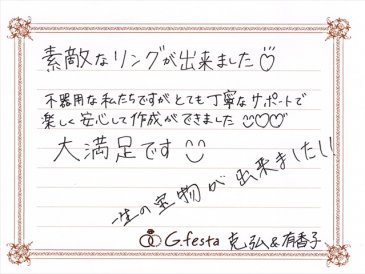 素敵なリングが出来ました
不器用な私たちですがとても丁寧なサポートで
楽しく安心して作成ができました
大満足です
一生の宝物が出来ました!!
G.festa 克弘&有香子